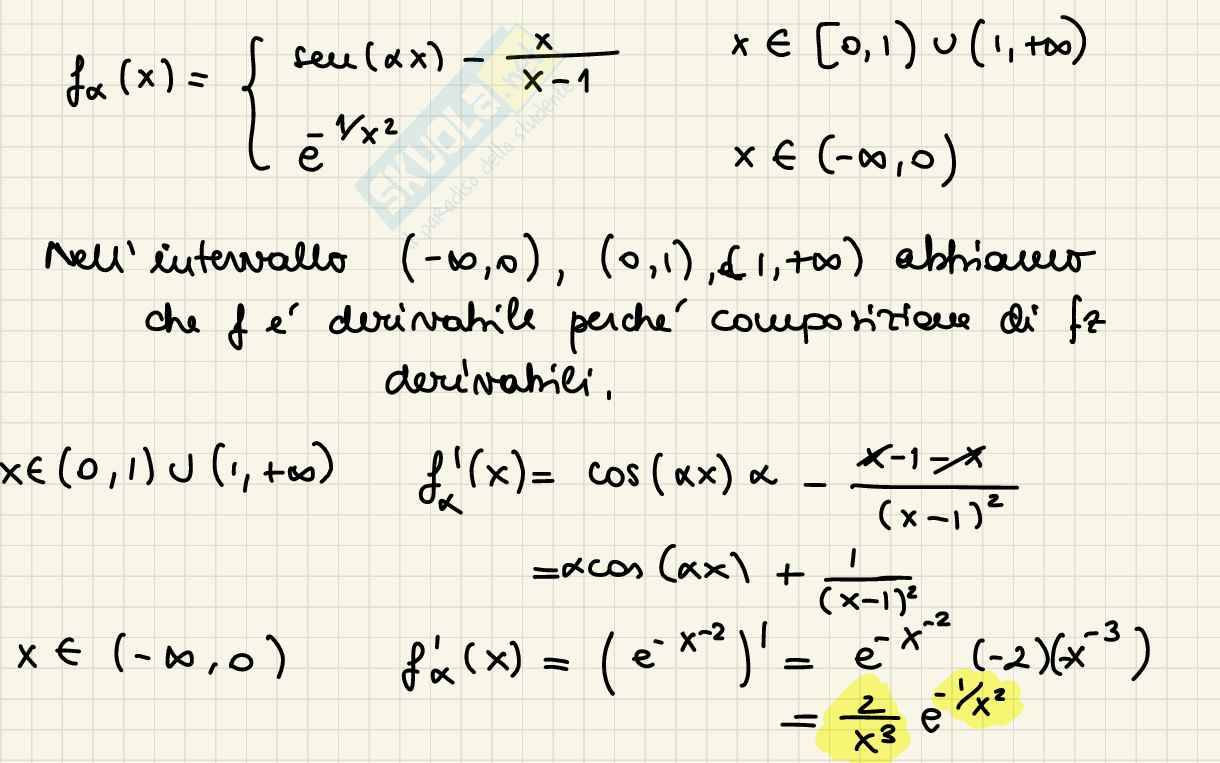 f_α(x) = { sen(αx) - x/(x-1)    x ∈ [0,1) ∪ (1,+∞)
e^{-1/x²}    x ∈ (-∞,0)
SKUOLA.net
il paradiso dello studente
Nell' intervallo (-∞,0), (0,1), (1,+∞) abbiamo
che f e' derivabile perche' composizione di fz
derivabili.
x∈(0,1)∪(1,+∞)    f'_α(x) = cos(αx) α - (x-1-x)/(x-1)²
= α cos(αx) + 1/(x-1)²
x ∈ (-∞,0)    f'_α(x) = (e^{-x^{-2}})' = e^{-x^{-2}} (-2)(-x^{-3})
= 2/x³ e^{-1/x²}